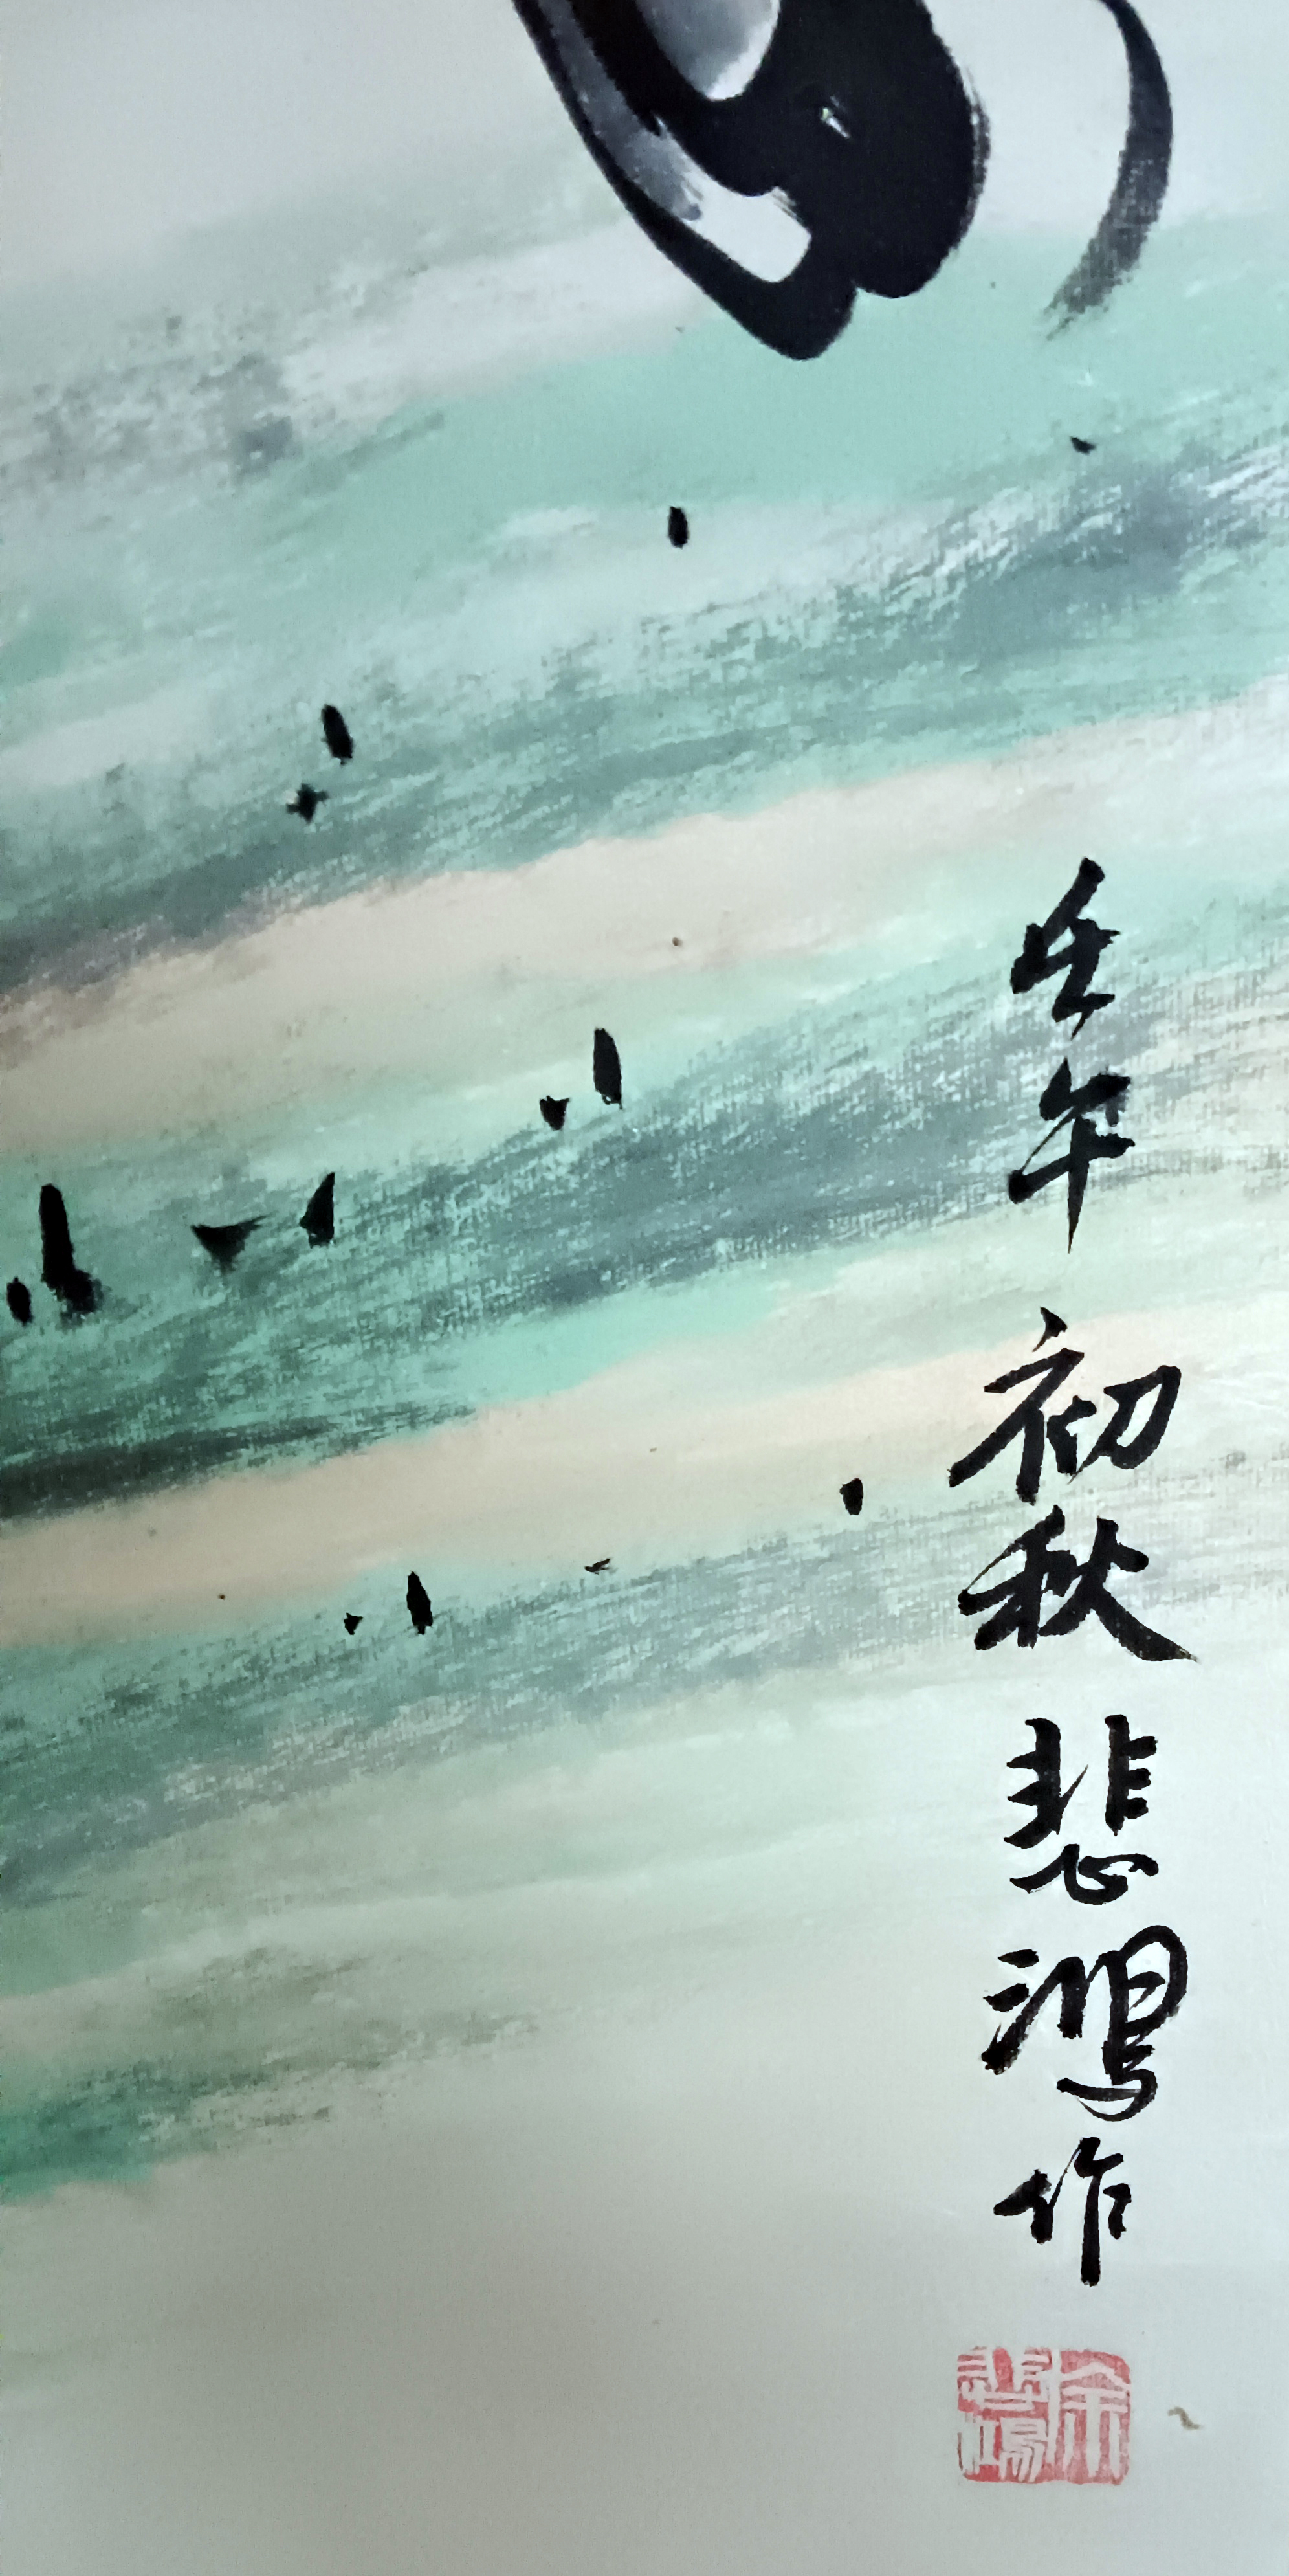 壬午初秋悲鴻作
徐悲鴻